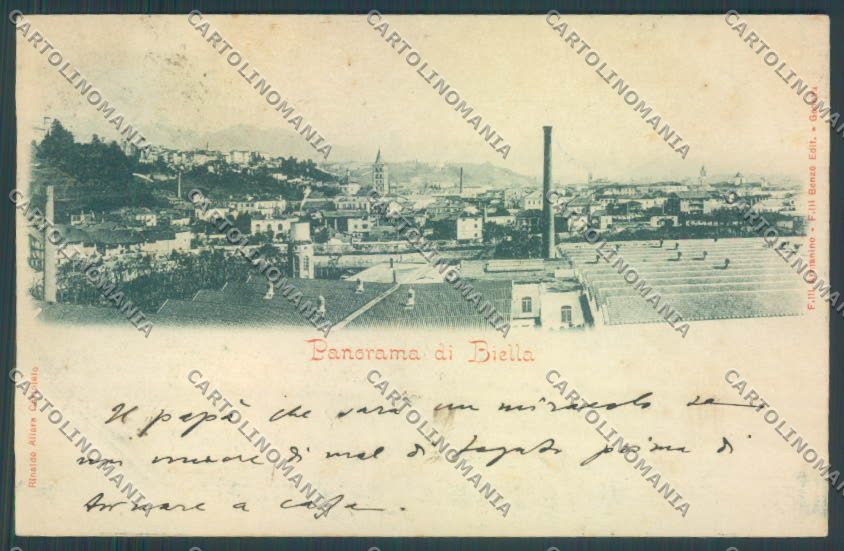 CARTOLINOMANIA CARTOLINOMANIA CARTOLINOMANIA CARTOLINOMANIA CARTOLINOMANIA
CARTOLINOMANIA CARTOLINOMANIA CARTOLINOMANIA CARTOLINOMANIA CARTOLINOMANIA
Edit.
F.lli Benzo
Panorama di Biella
Rinaldo Allara
CARTOLINOMANIA CARTOLINOMANIA CARTOLINOMANIA CARTOLINOMANIA CARTOLINOMANIA
Il papà che sarà un miracolo se
non muore di mal di fegato prima di
tornare a casa.